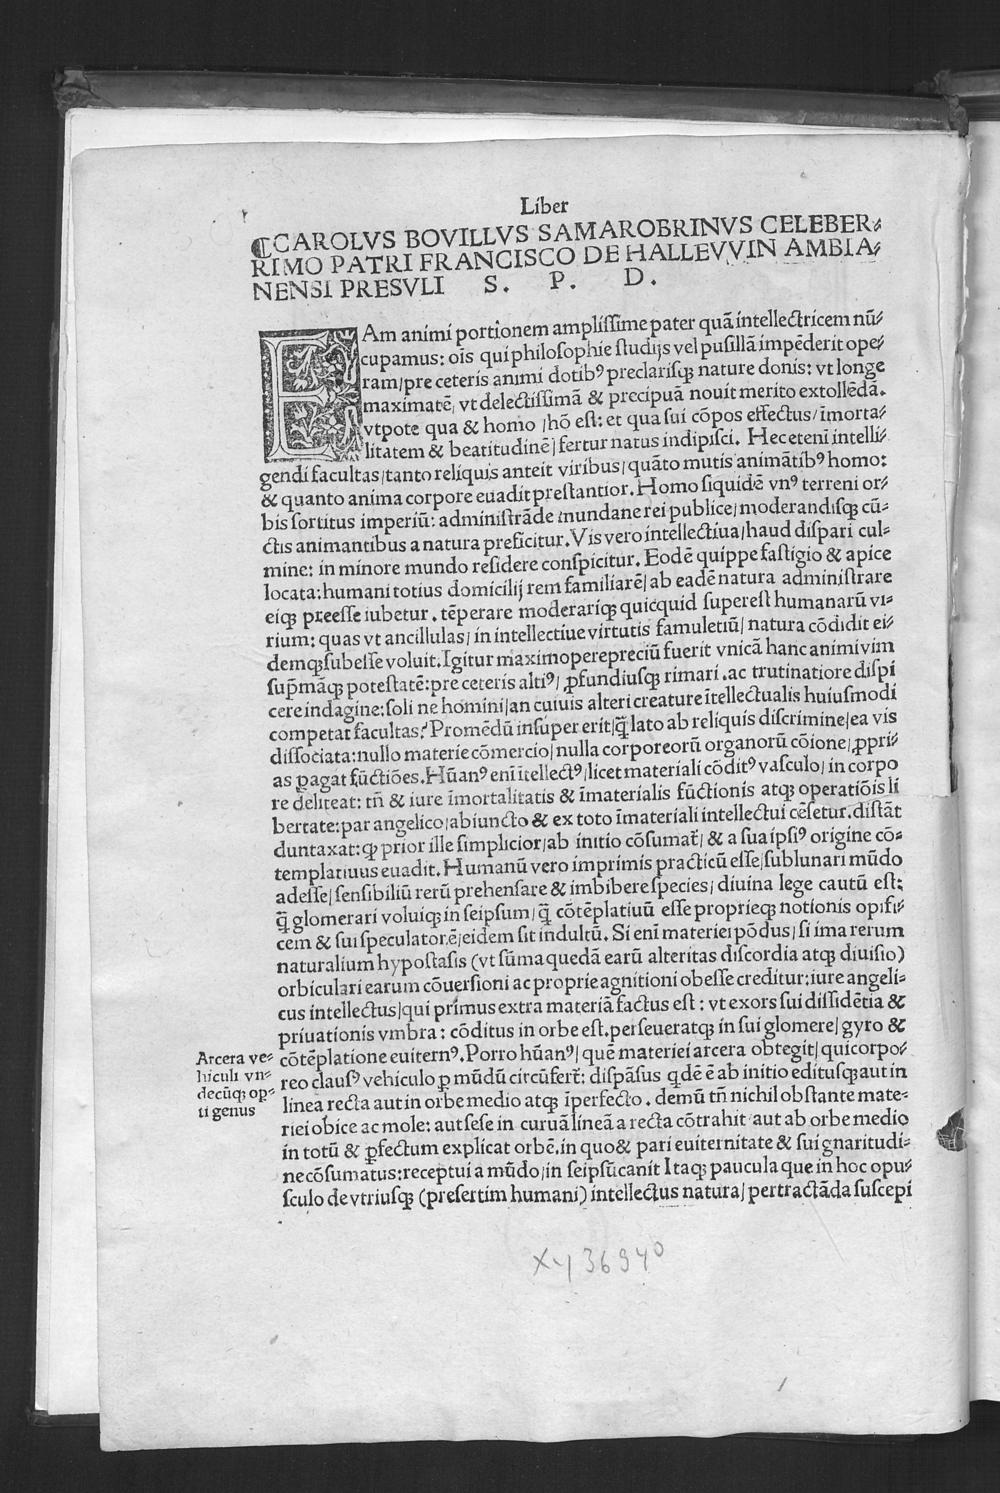 Liber
⸿CAROLVS BOVILLVS SAMAROBRINVS CELEBER⸗
RIMO PATRI FRANCISCO DE HALLEVVIN AMBIA⸗
NENSI PRESVLI S. P. D.
EAm animi portionem amplissime pater quā intellectricem nū⸗
cupamus: oīs qui philosophie studijs vel pusillā impēderit ope⸗
ram/pre ceteris animi dotibꝰ preclarisqꝫ nature donis: vt longe
maximatē, vt delectissimā & precipuā nouit merito extollēdā.
vtpote qua & homo /hō est: et qua sui cōpos effectus/īmorta⸗
litatem & beatitudinē/fertur natus indipisci. Hec etenī intelli⸗
gendi facultas/tanto reliquis anteit viribus/quāto mutis animātibꝰ homo:
& quanto anima corpore euadit prestantior. Homo siquidē vnꝰ terreni or⸗
bis sortitus imperiū: administrāde mundane rei publice/moderandisqꝫ cū⸗
ctis animantibus a natura preficitur. Vis vero intellectiua/haud dispari cul⸗
mine: in minore mundo residere conspicitur. Eodē quippe fastigio & apice
locata: humani totius domicilij rem familiarē/ab eadē natura administrare
eiqꝫ preesse iubetur. tēperare moderariqꝫ quicquid superest humanarū vi⸗
rium: quas vt ancillulas/in intellectiue virtutis famuletiū/natura cōdidit ei⸗
demqꝫ subesse voluit. Igitur maximopere preciū fuerit vnicā hanc animi vim
sup̄māqꝫ potestatē: pre ceteris altiꝰ/ꝓfundiusqꝫ rimari. ac trutinatiore dispi
cere indagine: soli ne homini/an cuiuis alteri creature ītellectualis huiusmodi
competat facultas? Promēdū insuper erit/q̄ lato ab reliquis discrimine/ea vis
dissociata: nullo materie cōmercio/nulla corporeorū organorū cōione/ꝓpri⸗
as ꝑagat fūctiōes. Hūanꝰ enī ītellectꝰ/licet materiali cōditꝰ vasculo/in corpo
re deliteat: tn̄ & iure īmortalitatis & īmaterialis fūctionis atqꝫ operatiōis li
bertate: par angelico/abiuncto & ex toto īmateriali intellectui cēsetur. distāt
duntaxat: ꝙ prior ille simplicior/ab initio cōsumat̄/& a sua ipsiꝰ origine cō⸗
templatiuus euadit. Humanū vero imprimis practicū esse/sublunari mūdo
adesse/sensibiliū rerū prehensare & imbibere species/diuina lege cautū est:
q̄ glomerari voluiqꝫ in seipsum/q̄ cōtēplatiuū esse proprieqꝫ notionis opifi⸗
cem & sui speculatorē/eidem sit indultū. Si enī materiei pōdus/si ima rerum
naturalium hypostasis (vt sūma quedā earū alteritas discordia atqꝫ diuisio)
orbiculari earum cōuersioni ac proprie agnitioni obesse creditur: iure angeli⸗
cus intellectus/qui primus extra materiā factus est: vt exors sui dissidētia &
priuationis vmbra: cōditus in orbe est. perseueratqꝫ in sui glomere/gyro &
cōtēplatione euiternꝰ. Porro hūanꝰ/quē materiei arcera obtegit/qui corpo⸗
reo clausꝰ vehiculo ꝑ mūdū circūfert̄: dispāsus qdē ē ab initio editusqꝫ aut in
linea recta aut in orbe medio atqꝫ īperfecto. demū tn̄ nichil obstante mate⸗
riei obice ac mole: aut sese in curuā līneā a recta cōtrahit aut ab orbe medio
in totū & ꝑfectum explicat orbē. in quo & pari euiternitate & sui gnaritudi⸗
ne cōsumatus: receptui a mūdo/in seipsū canit Itaqꝫ paucula que in hoc opu⸗
sculo de vtriusqꝫ (presertim humani) intellectus natura/pertractāda suscepi
Arcera ve⸗
hiculi vn⸗
decūqꝫ op⸗
ti genus